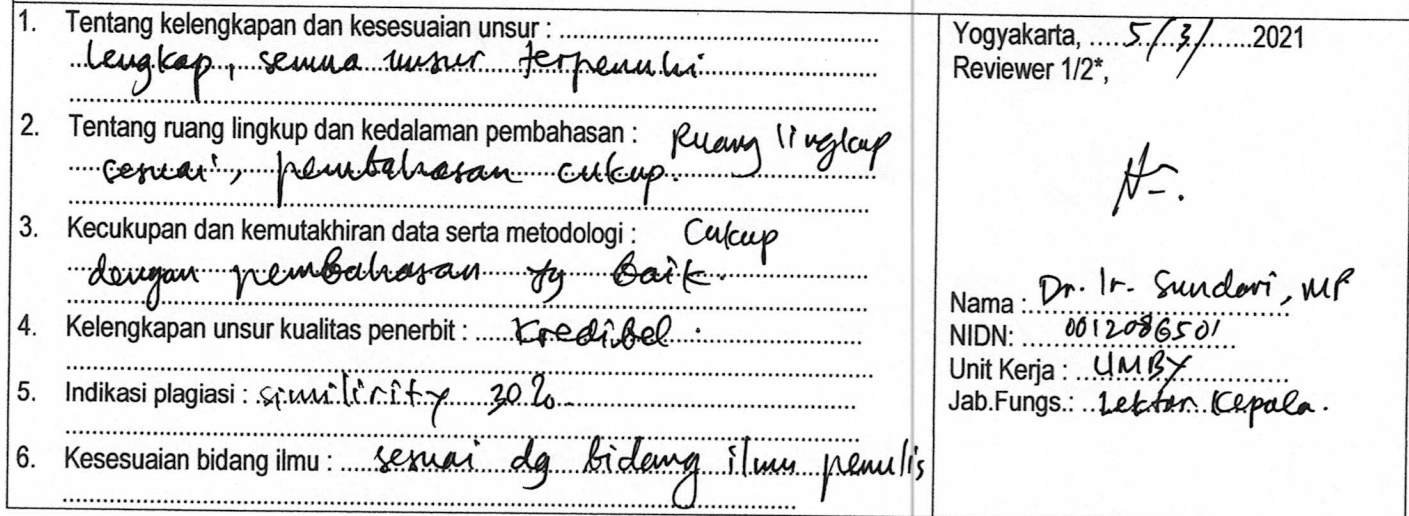 1. Tentang kelengkapan dan kesesuaian unsur : ..........
Lengkap, semua unsur terpenuhi
2. Tentang ruang lingkup dan kedalaman pembahasan : Ruang lingkup
sesuai, pembahasan cukup.
3. Kecukupan dan kemutakhiran data serta metodologi : Cukup
dengan pembahasan yg baik.
4. Kelengkapan unsur kualitas penerbit : Kredibel.
5. Indikasi plagiasi : similirity 30%
6. Kesesuaian bidang ilmu : sesuai dg bidang ilmu penulis
Yogyakarta, 5/3/2021
Reviewer 1/2*,
Nama : Dr. Ir. Sundari, MP
NIDN: 0012086501
Unit Kerja : UMBY
Jab.Fungs.: Lektor Kepala.